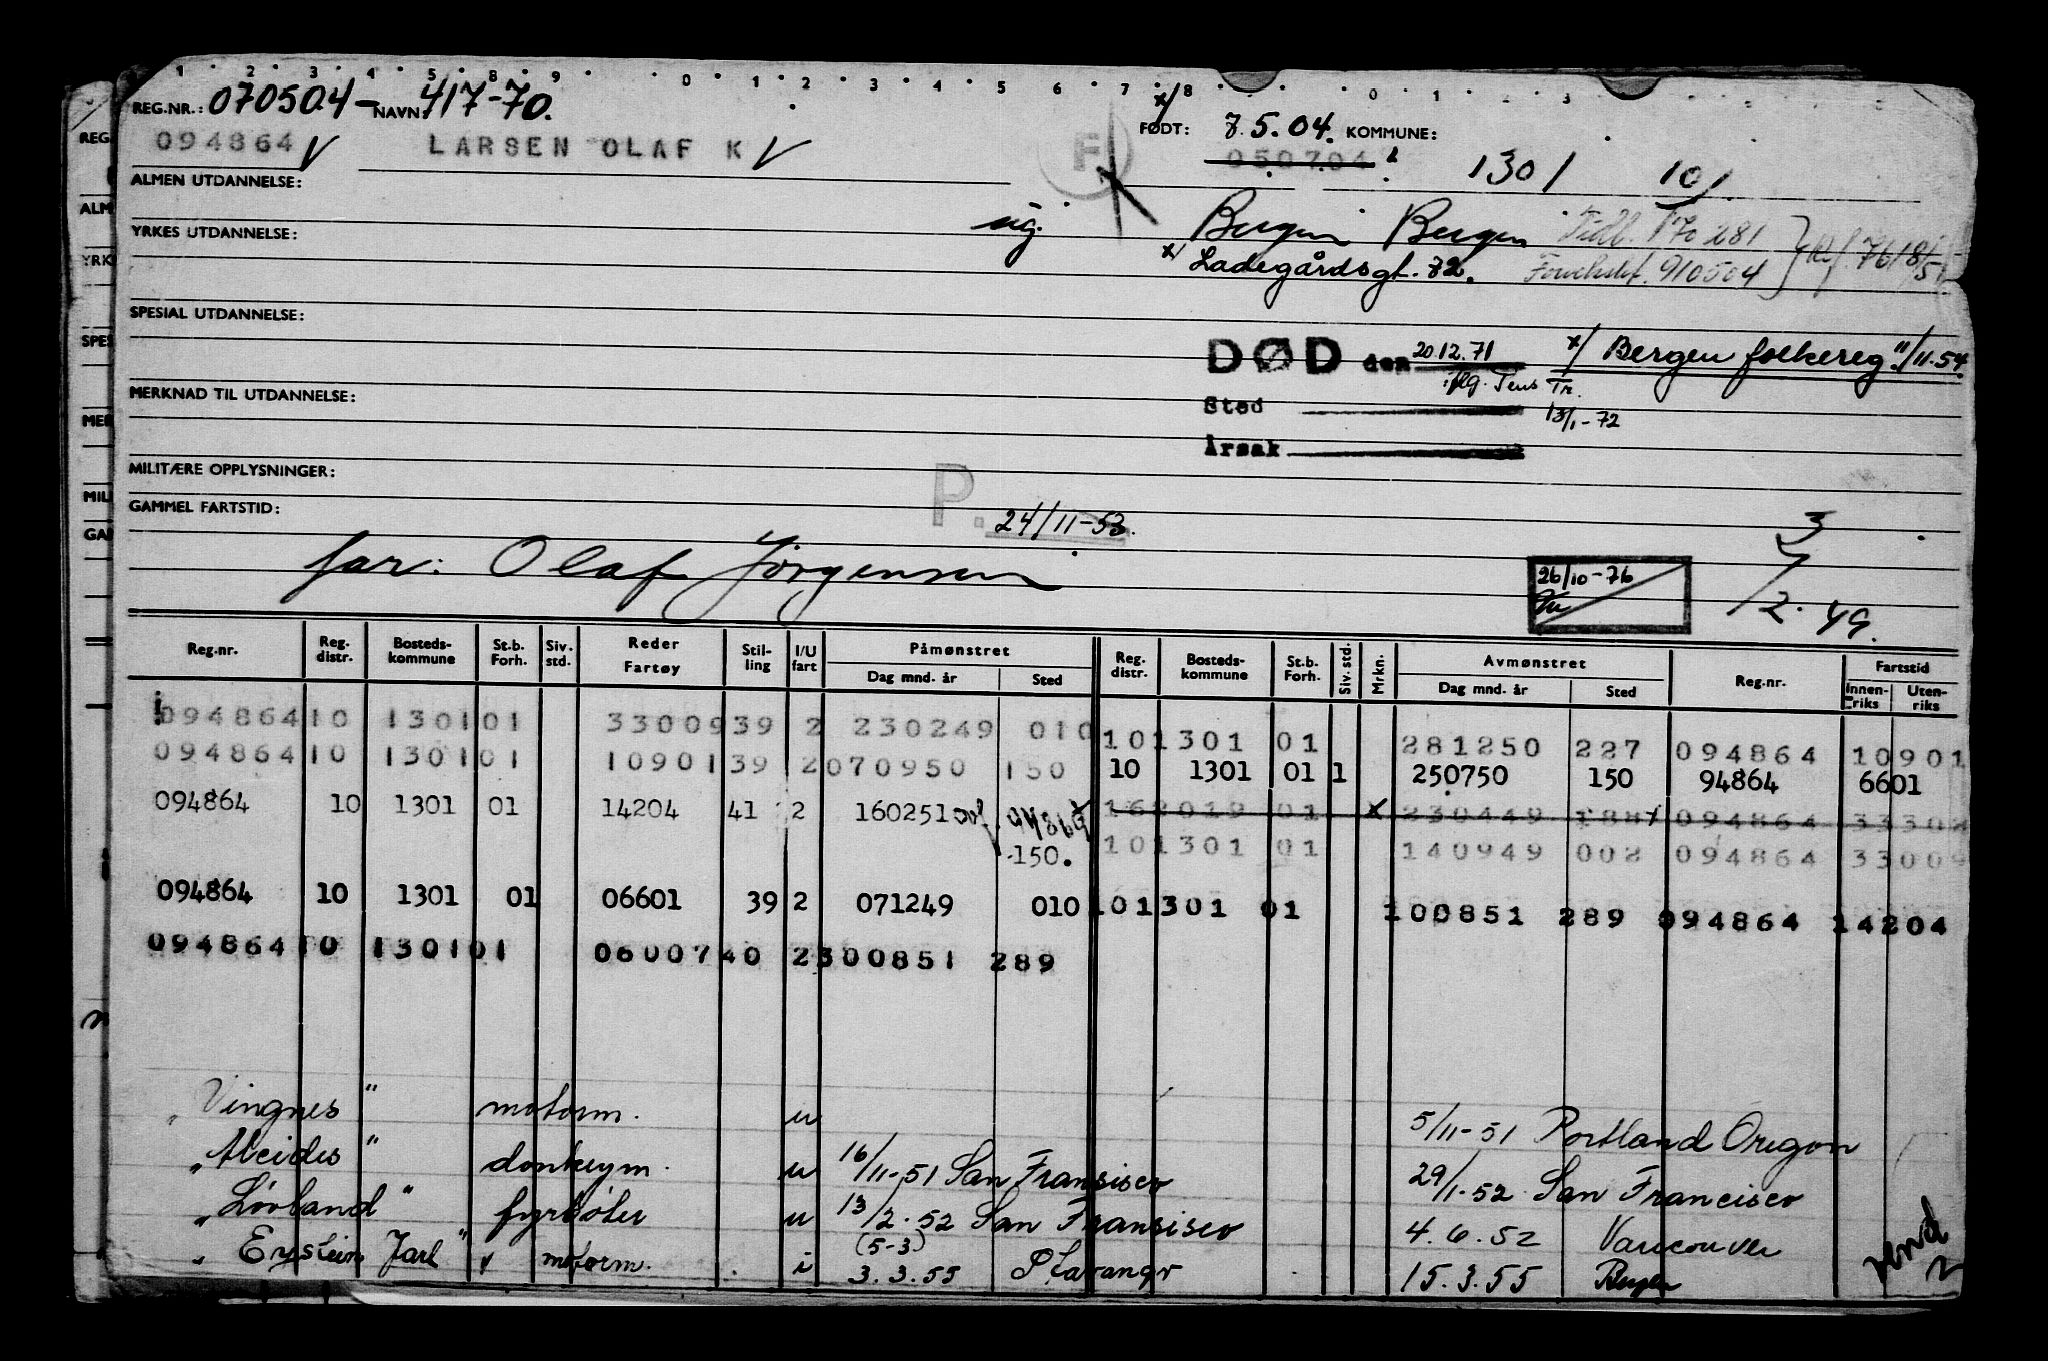 1 2 3 4 5 8 9 0 1 2 3 4 5 6 7 8 0 1 3
REG.NR.: 070504 - NAVN: 417-70. FØDT: 7.5.04. KOMMUNE:
094864 V LARSEN OLAF K V F 050704 1301 101
ALMEN UTDANNELSE:
ug. Bergen Bergen Tidl. 170281
YRKES UTDANNELSE:
x/ Ladegårdsgt. 72. 910504
SPESIAL UTDANNELSE:
DØD den 20.12.71 x/ Bergen folkereg. 11/11-54.
iflg. Tens Tr.
MERKNAD TIL UTDANNELSE:
Sted 13/1-72
Årsak
MILITÆRE OPPLYSNINGER:
GAMMEL FARTSTID:
P. 24/11-53.
far: Olaf Jörgensen
26/10-76
3/2.49.
Reg.nr. Reg. distr. Bosteds-kommune St.b. Forh. Siv. std. Reder Fartøy Stil-ling I/U fart Påmønstret Dag mnd. år Sted Reg. distr. Bosteds-kommune St.b. Forh. Siv. std. Mrkn. Avmønstret Dag mnd. år Sted Reg.nr. Fartstid Innen-riks Uten-riks
094864 10 1301 01 33009 39 2 230249 010 10 1301 01 281250 227 094864 10901
094864 10 1301 01 10901 39 2 070950 150 10 1301 01 1 250750 150 94864 6601
094864 10 1301 01 14204 41 2 160251 162019 01 x 230449 188 094864 33302
150. 10 1301 01 140949 002 094864 33009
094864 10 1301 01 06601 39 2 071249 010 10 1301 01 100851 289 094864 14204
094864 10 1301 01 06007 40 2 300851 289
„Vingnes" motorm. u 5/11-51 Portland Oregon
„Alcides" donkeym. u 16/11-51 San Fransisco 29/1-52 San Francisco
„Lövland" fyrböter u 13/2-52 San Fransisco 4.6.52 Vancouver
(5-3)
„Erystein Jarl" motorm. i 3.3.55 Stavanger 15.3.55 Bergen
vend